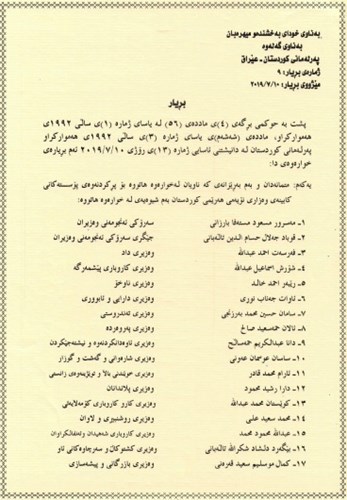 بەناوی خودای بەخشندەو میهرەبان
بەناوی گەلەوە
پەرلەمانی کوردستان - عێراق
ژمارەی بڕیار: ٩
مێژووی بڕیار: ٢٠١٩/٧/١٠
بڕیار
پشت بە حوکمی بڕگەی (٤)ی ماددەی (٥٦) لە یاسای ژمارە (١)ی ساڵی ١٩٩٢ی
هەموارکراو، ماددەی (شەشەم)ی یاسای ژمارە (٣)ی ساڵی ١٩٩٢ی هەموارکراو
پەرلەمانی کوردستان لە دانیشتنی ئاسایی ژمارە (١٣)ی رۆژی ٢٠١٩/٧/١٠ ئەم بڕیارەی
خوارەوەی دا:
یەکەم: متمانەدان و بەم بەڕێزانەی کە ناویان لەخوارەوە هاتووە بۆ پڕکردنەوەی پۆستەکانی
کابینەی وەزاری نۆیەمی هەرێمی کوردستان بەم شێوەیەی لە خوارەوە هاتووە:
١- مەسرور مسعود مستەفا بارزانی سەرۆکی ئەنجومەنی وەزیران
٢- قوباد جەلال حسام الدین تاڵەبانی جێگری سەرۆکی ئەنجومەنی وەزیران
٣- فەرسەت احمد عبداللە وەزیری داد
٤- شۆڕش اسماعیل عبداللە وەزیری کاروباری پێشمەرگە
٥- رێبەر احمد خالد وەزیری ناوخۆ
٦- ئاوات جەناب نوری وەزیری دارایی و ئابووری
٧- سامان حسین محمد بەرزنجی وەزیری تەندروستی
٨- ئالان حمەسعید صالح وەزیری پەروەردە
٩- دانا عبدالکریم حمەصالح وەزیری ئاوەدانکردنەوە و نیشتەجێکردن
١٠- ساسان عوسمان عەونی وەزیری شارەوانی و گەشت و گوزار
١١- ئارام محمد قادر وەزیری خوێندنی باڵا و توێژینەوەی زانستی
١٢- دارا رشید محمود وەزیری پلاندانان
١٣- کوێستان محمد عبداللە وەزیری کارو کاروباری کۆمەڵایەتی
١٤- محمد سعید علی وەزیری رۆشنبیری و لاوان
١٥- عبداللە محمود محمد وەزیری کاروباری شەهیدان و ئەنفالکراوان
١٦- بێگەرد دلشاد شکراللە تاڵەبانی وەزیری کشتوکاڵ و سەرچاوەکانی ئاو
١٧- کمال موسلیم سعید قەرەنی وەزیری بازرگانی و پیشەسازی